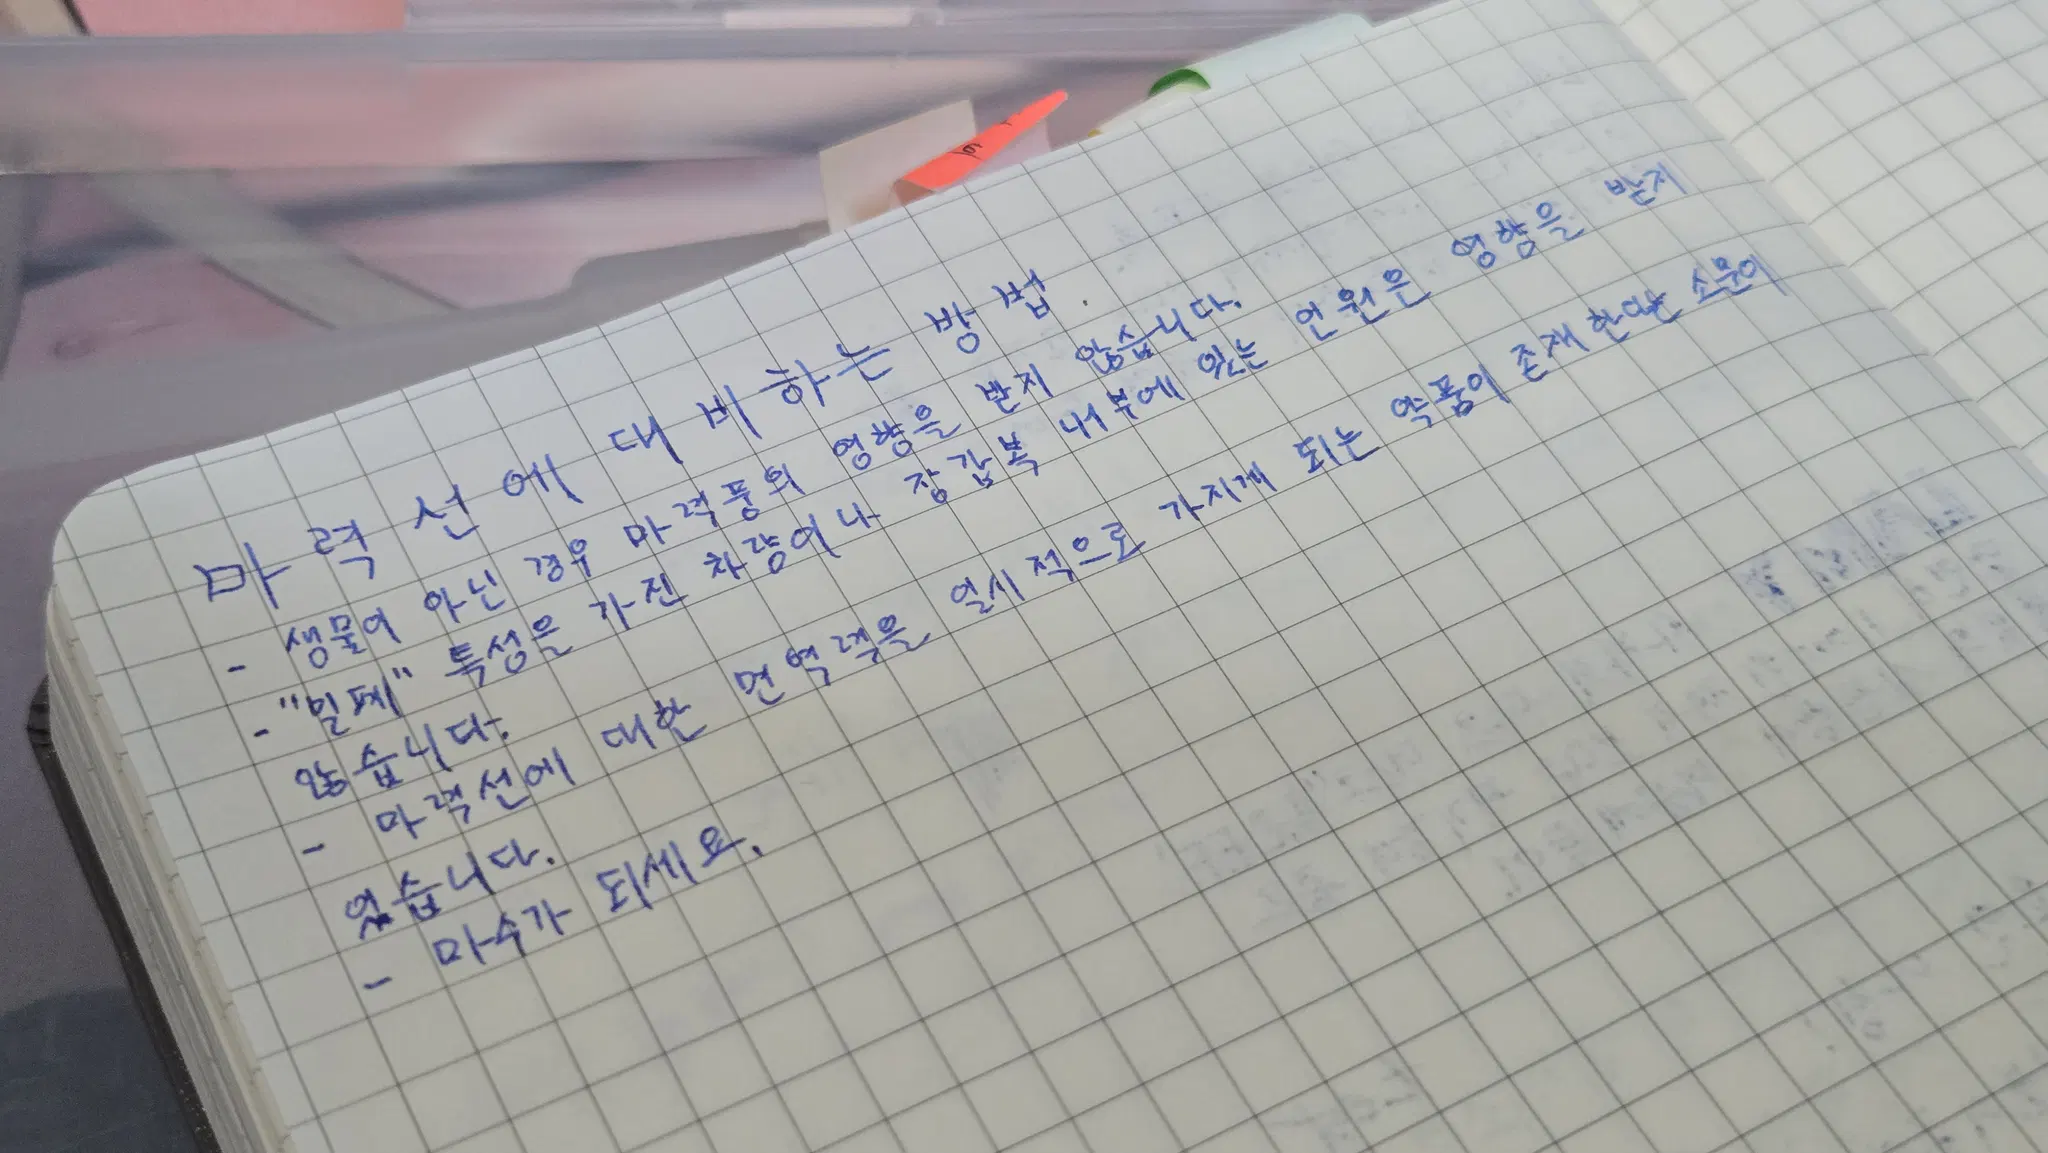 마력선에 대비하는 방법.
- 생물이 아닌 경우 마력풍의 영향을 받지 않습니다.
- "밀폐" 특성을 가진 차량이나 장갑복 내부에 있는 인원은 영향을 받지
않습니다.
- 마력선에 대한 면역력을 일시적으로 가지게 되는 약품이 존재한다는 소문이
있습니다.
- 마수가 되세요.